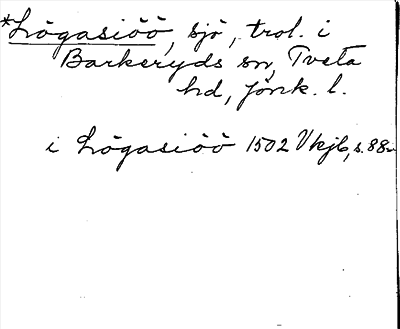 *Lògasiòò, sjö, trol. i
Barkeryds sn, Tveta
hd, Jönk. l.
i Lògasiòò 1502 Vkjb, s. 88